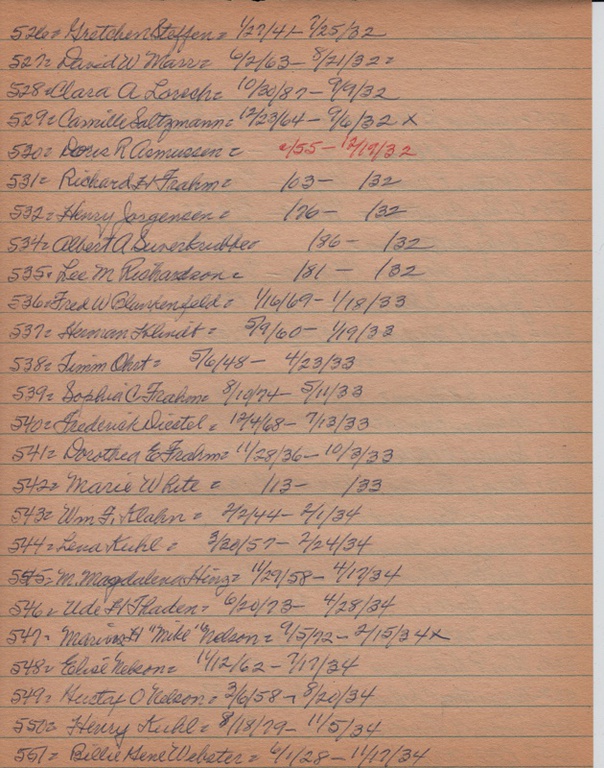 526= Gretchen Steffen= 1/27/41- 7/25/32
527= David W Marr= 6/2/63- 8/21/32=
528= Clara A Lorsch= 10/30/87- 9/9/32
529= Camille Saltzmann= 12/23/64- 9/6/32 x
530= Doris R Asmussen= /55- 12/19/32
531= Richard H Frahm= /03- /32
532= Henry Jorgensen= /76- /32
534= Albert A Suverkrubbe= /86- /32
535= Lee M Richardson= /81- /32
536= Fred W Blunkenfeld= 1/16/69- 1/18/33
537= Herman Klindt= 5/9/60- 1/19/33
538= Timm Ohrt= 5/6/48- 4/23/33
539= Sophia C Frahm= 8/10/74- 5/11/33
540= Frederick Diestel= 12/4/68- 7/13/33
541= Dorothea E Frahm= 11/28/36- 10/3/33
542= Marie White= /13- /33
543= Wm F. Klahn= 2/2/44- 2/1/34
544= Lena Kuhl= 3/20/57- 2/24/34
545= M. Magdalena Hinz= 11/27/58- 4/17/34
546= Ude H Thaden= 6/20/73- 4/28/34
547= Marius H "Mike" Nelson= 9/5/72- 2/15/34x
548= Elise Nelson= 11/12/62- 7/17/34
549= Gustav O Nelson= 3/6/58- 8/20/34
550= Henry Kuhl= 8/18/79- 11/5/34
551= Billie Gene Webster= 6/1/28- 11/17/34